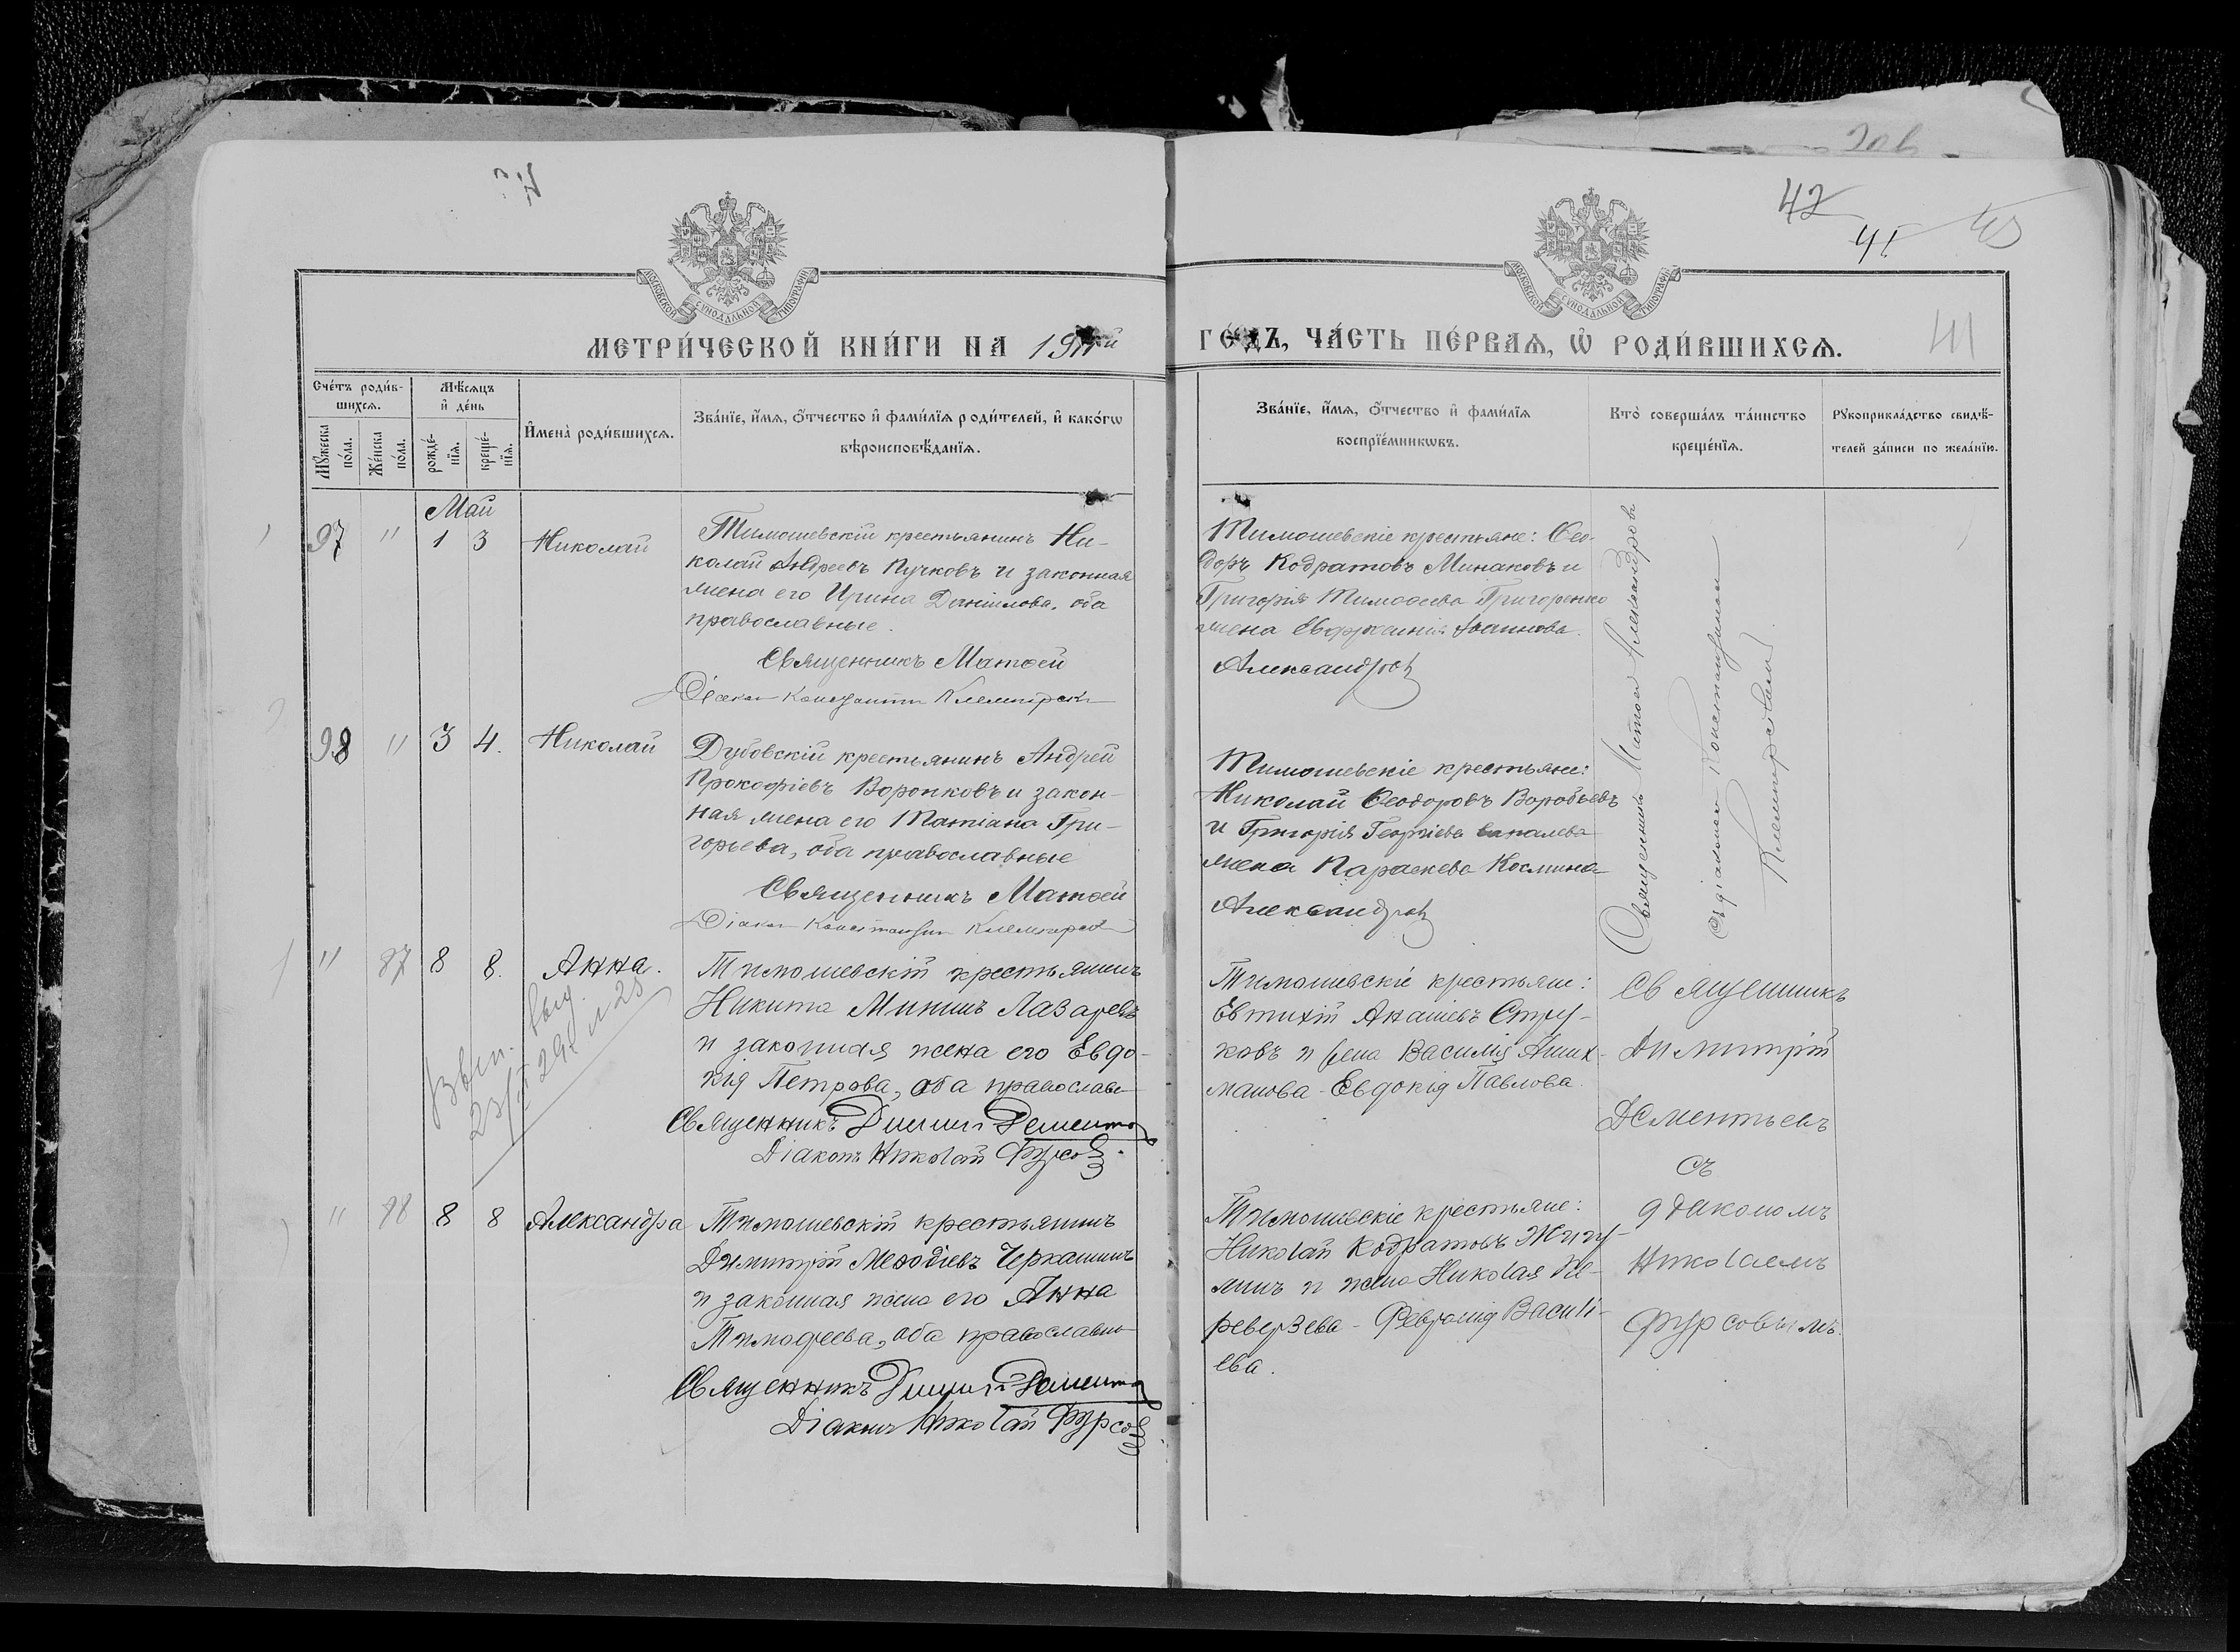 42
41
МОСКОВСКОЙ СѴНОДАЛЬНОЙ ТИПОГРАФІИ
МОСКОВСКОЙ СѴНОДАЛЬНОЙ ТИПОГРАФІИ
МЕТРИ́ЧЕСКОЙ КНИ́ГИ НА 1911й
ГО́ДЪ, ЧА́СТЬ ПЕ́РВАѦ, Ѡ РОДИ́ВШИХСѦ.
41
Сче́тъ роди́в-
шихсѧ.
Мужеска по́ла.
Же́нска по́ла.
Мѣ́сѧцъ
и҆ де́нь
рожде́-
нїѧ.
креще́-
нїѧ.
И҆мена̀ роди́вшихсѧ.
Зва́нїе, и҆́мѧ, ѻ҆́тчество и҆ фами́лїѧ роди́телей, и҆ како́гѡ
вѣроисповѣ́данїѧ.
Зва́нїе, и҆́мѧ, ѻ҆́тчество и҆ фами́лїѧ
воспрїе́мникѡвъ.
Кто̀ соверша́лъ та́инство
креще́нїѧ.
Рꙋкоприкла́дство свидѣ́-
телей за́писи по жела́нїю.
Май
97 " 1 3 Николай
Тимошевскій крестьянинъ Ни-
колай Андреевъ Пучковъ и законная
жена его Ирина Даніилова, оба
православные.
Священникъ Матѳей
Діакон Константин
Тимошевскіе крестьяне: Ѳео-
доръ Кодратовъ Минаковъ и
Григорія Тимоѳеева Григоренко
жена Евфиміия Іоаннова.
Александров
98 " 3 4. Николай
Дубовскій крестьянинъ Андрей
Прокофіевъ Воропковъ и закон-
ная жена его Татіана Гри-
горьева, оба православные
Священникъ Матѳей
Діакон Константин
Тимошевскіе крестьяне:
Николай Ѳеодоровъ Воробьевъ
и Григорія Георгіева
жена Параскева Космина
Александров
Священникъ Матѳей Александровъ
съ діакономъ Константиномъ
" 87 8 8. Анна.
Тимошевскій крестьянинъ
Никита Мининъ Лазаревъ
и законная жена его Евдо-
кія Петрова, оба православн
Священникъ Димитрій Дементьев
Діаконъ Николай Фурсов
Тимошевскіе крестьяне:
Евтихій Ананіевъ Стру-
ковъ и жена Василія
манова - Евдокія Павлова.
Священникъ
Димитрій
Дементьевъ
съ
діакономъ
Николаемъ
Фурсовымъ.
выд.
23/II 29г. №25
" 88 8 8 Александра
Тимошевскій крестьянинъ
Димитрій Меѳодіевъ Черкашинъ
и законная жена его Анна
Тимофеева, оба православны
Священникъ Димитрій Дементьев
Діаконъ Николай Фурсов
Тимошевскіе крестьяне:
Николай Кодратовъ Жигу-
линъ и жена Николая Пе-
реверзева - Февронія Василі-
ева.